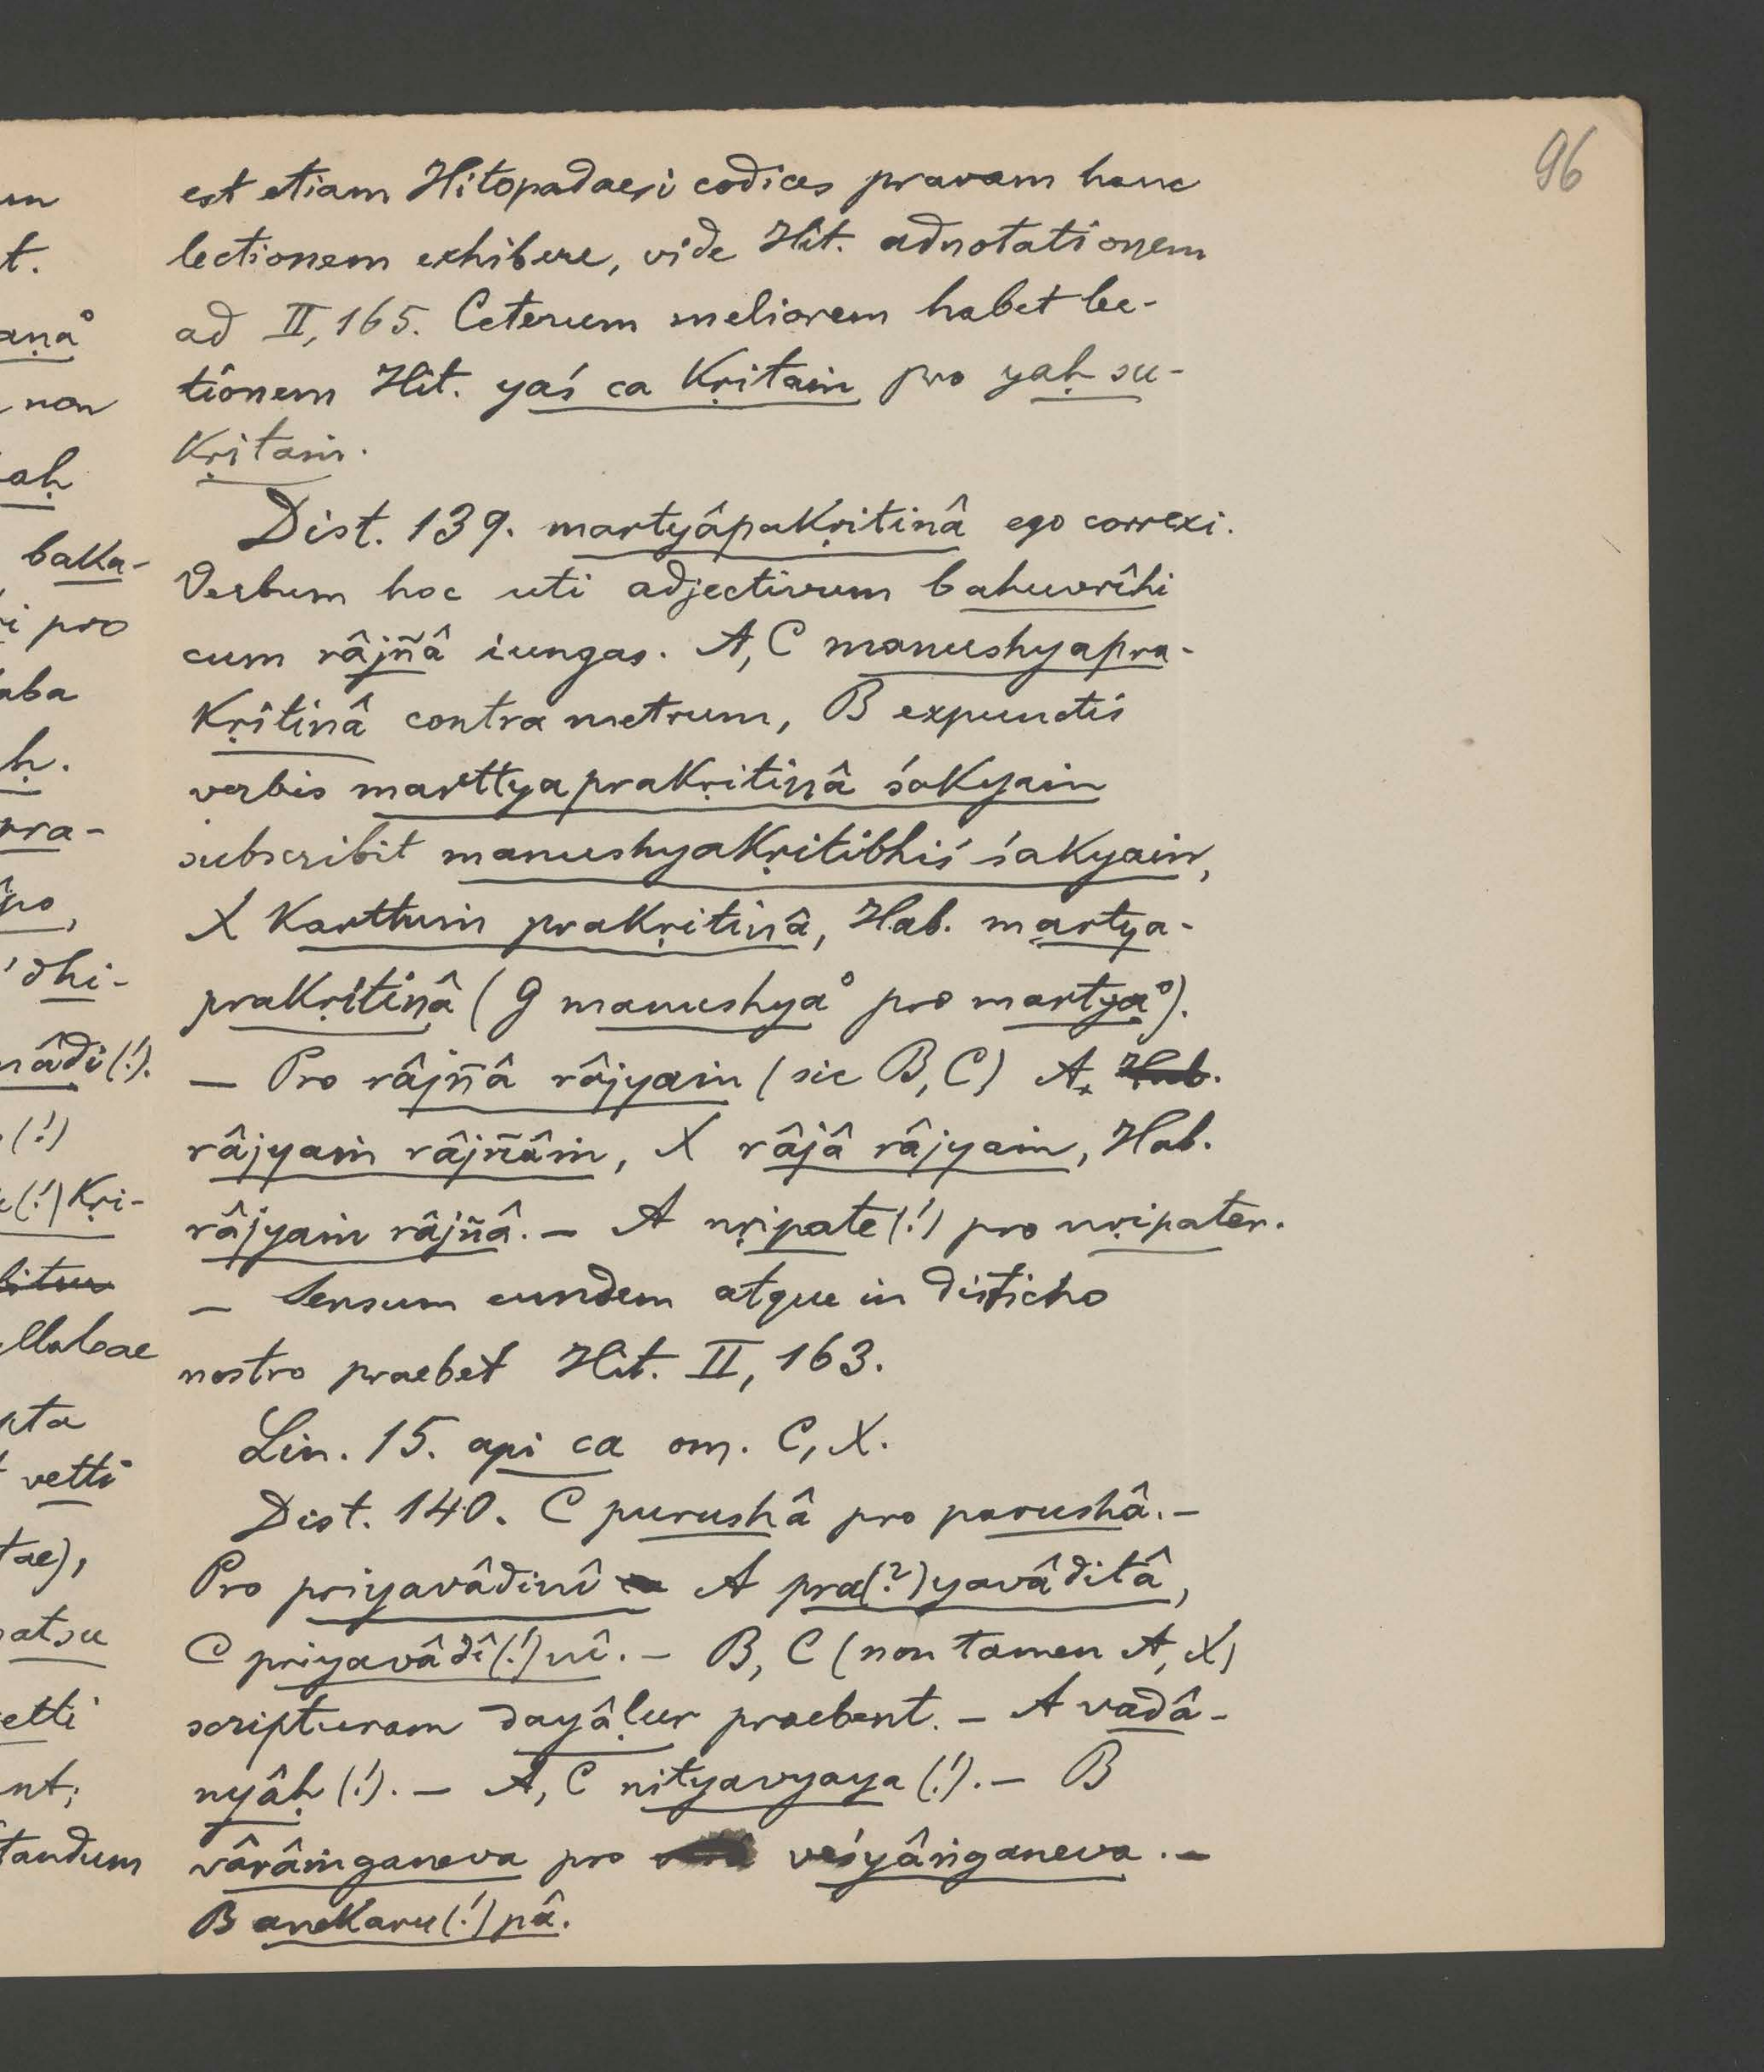 96
est etiam Hitopadaesi codices pravam hanc
lectionem exhibere, vide Hit. adnotationem
ad II, 165. Ceterum meliorem habet lec-
tionem Hit. yaś ca kṛitaṁ pro yaḥ su-
kṛitaṁ.
Dist. 139. martyâpakṛitinâ ego correxi.
Verbum hoc uti adjectivum bahuvrîhi
cum râjñâ iungas. A, C manushyapra-
kṛitinâ contra metrum, B expunctis
verbis marttyaprakṛitinâ śakyaṁ
subscribit manushyakṛitibhiś śakyaṁ,
X karttuṁ prakṛitinâ, Hab. martya-
prakṛitinâ (G manushya° pro martya°).
— Pro râjñâ râjyaṁ (sic B, C) A, Hab.
râjyaṁ râjñâṁ, X râjâ râjyaṁ, Hab.
râjyaṁ râjñâ. — A nṛipate (!) pro nṛipater.
— Sensum eundem atque in disticho
nostro praebet Hit. II, 163.
Lin. 15. api ca om. C, X.
Dist. 140. C purushâ pro parushâ. —
Pro priyavâdinî A pra(?)yavâditâ,
C priyavâdî(!)nî. — B, C (non tamen A, X)
scripturam dayâḷur praebent. — A vadâ-
nyâḥ (!). — A, C nityavyaya (!). — B
vârâṁganeva pro veśyâṅganeva. —
B anekaru(!)pâ.